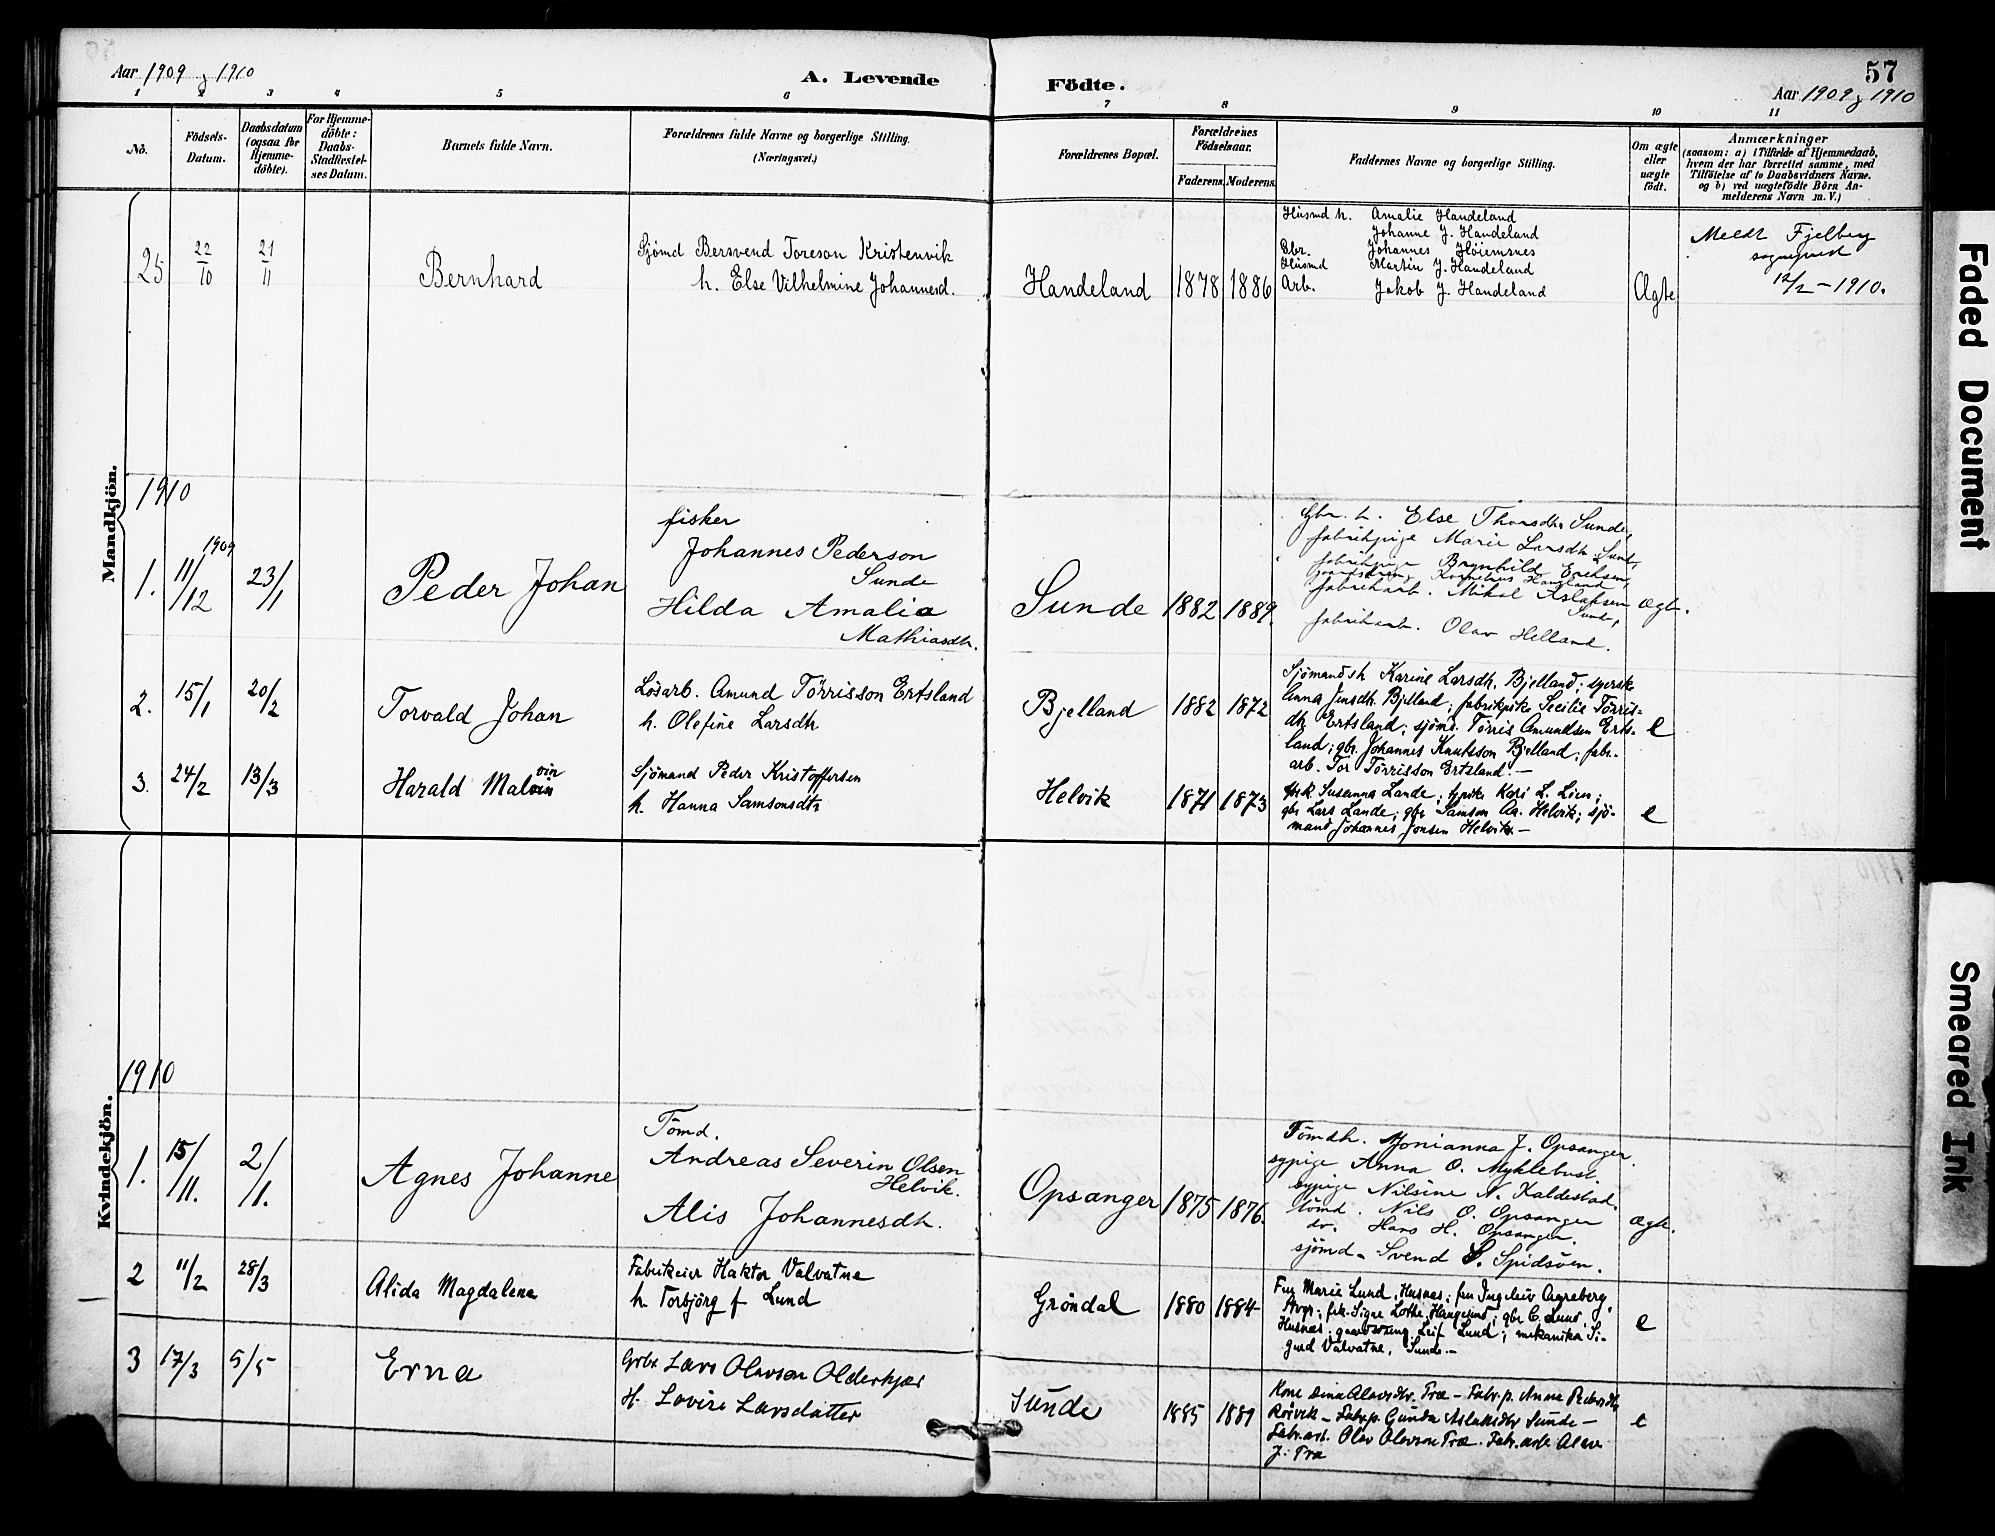 Aar 1909 og 1910
A. Levende
Födte.
57
Aar 1909 og 1910
1 2 3 4 5 6 7 8 9 10 11
No.
Födsels-
Datum.
Daabsdatum
(ogsaa for
Hjemme-
döbte).
For Hjemme-
döbte:
Daabs-
Stadfæstel-
ses Datum.
Barnets fulde Navn.
Forældrenes fulde Navne og borgerlige Stilling.
(Næringsvei.)
Forældrenes Bopæl.
Forældrenes
Födselsaar.
Faderens. Moderens.
Faddernes Navne og borgerlige Stilling.
Om ægte
eller
uægte
født.
Anmærkninger
(saasom: a) i Tilfælde af Hjemmedaab,
hvem der har forrettet samme, med
Tilföielse af to Daabsvidners Navne.
og b) ved uægtefödte Börn An-
melderens Navn m. V.)
Mandkjön.
25 22/10 21/11
Bernhard
Sjømd Bersvend Toreson Kristenvik
h. Else Vilhelmine Johannesd.
Handeland
1878 1886
Husmd h. Amalie Handeland
Johanne J. Handeland
Gbr. Johannes Høiemsnes
Husmd Martin J. Handeland
Arb. Jakob J. Handeland
Ægte
Meldt Fjelberg
sogneprest
12/2 - 1910.
1910
1. 11/12 1909 23/1
Peder Johan
fisker
Johannes Pederson
Sunde
Hilda Amalia
Mathiasdtr.
Sunde
1882 1889.
Gbr. h. Else Thorsdtr Sunde,
fabrikpige Marie Larsdtr Sunde,
fabrikpige Brynhild Eriksen,
fabrikarb. Mikal Aslaksen
Sunde,
fabrikarb. Olav Helland.
Ægte.
2. 15/1 20/2
Torvald Johan
Løsarb. Amund Törrisson Ertsland
h. Olefine Larsdtr
Bjelland
1882 1872
Sjömandsh Karine Larsdtr. Bjelland; syerske
Anna Jensdtr. Bjelland; fabrikpike Secilie Törris-
dtr Ertsland; sjömd. Törris Amundsen Erts-
land; gbr. Johannes Knutsson Bjelland; fabr.-
arb. Tor Törrisson Ertsland. -
e
3. 24/2 13/3
Harald Malvin
Sjömand Peder Kristoffersen
h. Hanna Samsonsdtr
Helvik
1871 1873
Susanna Lande; Kari L. Lien;
gbr Lars Lande; gbr Samson Aa. Helvik; sjö-
mand Johannes Jonsen Helvik. -
e
Kvindekjön.
1910
1. 15/11. 2/1.
Agnes Johanne
Tömd.
Andreas Severin Olsen
Helvik.
Alis Johannesdtr.
Opsanger
1875 1876.
Tömdh. Jonianna J. Opsanger.
sypige Anna O. Myklebust.
sypige Nilsine N. Kaldestad.
tömd. Nils O. Opsanger
do. Hans H. Opsanger.
sjömd. Svend S. Spidsöen.
Ægte.
2 11/2 28/3
Alida Magdalena
Fabrikeier Haktor Valvatne
h Torbjörg f Lund
Gröndal
1880 1884
Fru Marie Lund, Husnes; fru Ingeleiv Aagreberg,
frk. Signe Lothe, Haugesund; gbr C. Lund,
Husnes; Leif Lund; mekanika Si-
gurd Valvatne, Sunde. -
e
3 17/3 5/5
Erna
Grbr Lars Olavson Olderkjær
H. Lovise Larsdatter
Sunde
1885 1889
Kone Sina Olavsdtr. Træ - Fabr.p. Anna Pedersdtr
Rörvik - Fabr.p. Gunda Aslaksdtr Sunde -
Fabr.arb. Olav Olavson Træ. Fabr.arb. Olav
J. Træ
e
Faded Document
Smeared Ink